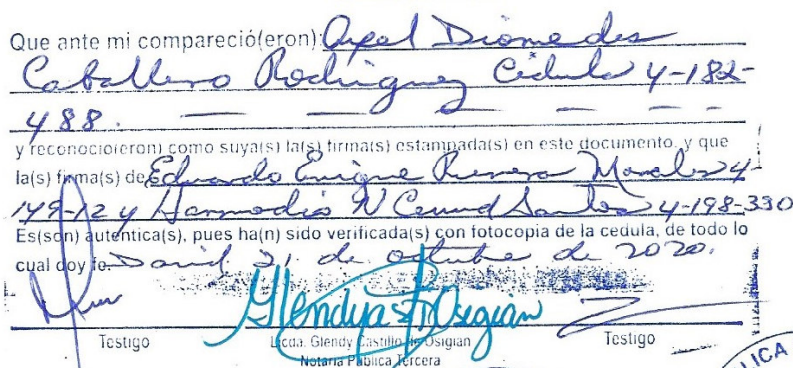 Que ante mi compareció(eron): Diomedes
Caballero Rodriguez Cédula 4-182-
488. — — — — —
y reconoció(eron) como suya(s) la(s) firma(s) estampada(s) en este documento, y que
la(s) firma(s) de Eduardo Enrique Morales 4-
149-12 y Hermodio N Santos 4-198-330
Es(son) auténtica(s), pues ha(n) sido verificada(s) con fotocopia de la cedula, de todo lo
cual doy fe. David 21 de octubre de 2020.
Glendy Osigian
Testigo
Licda. Glendy Castillo de Osigian
Testigo
Notaria Pública Tercera